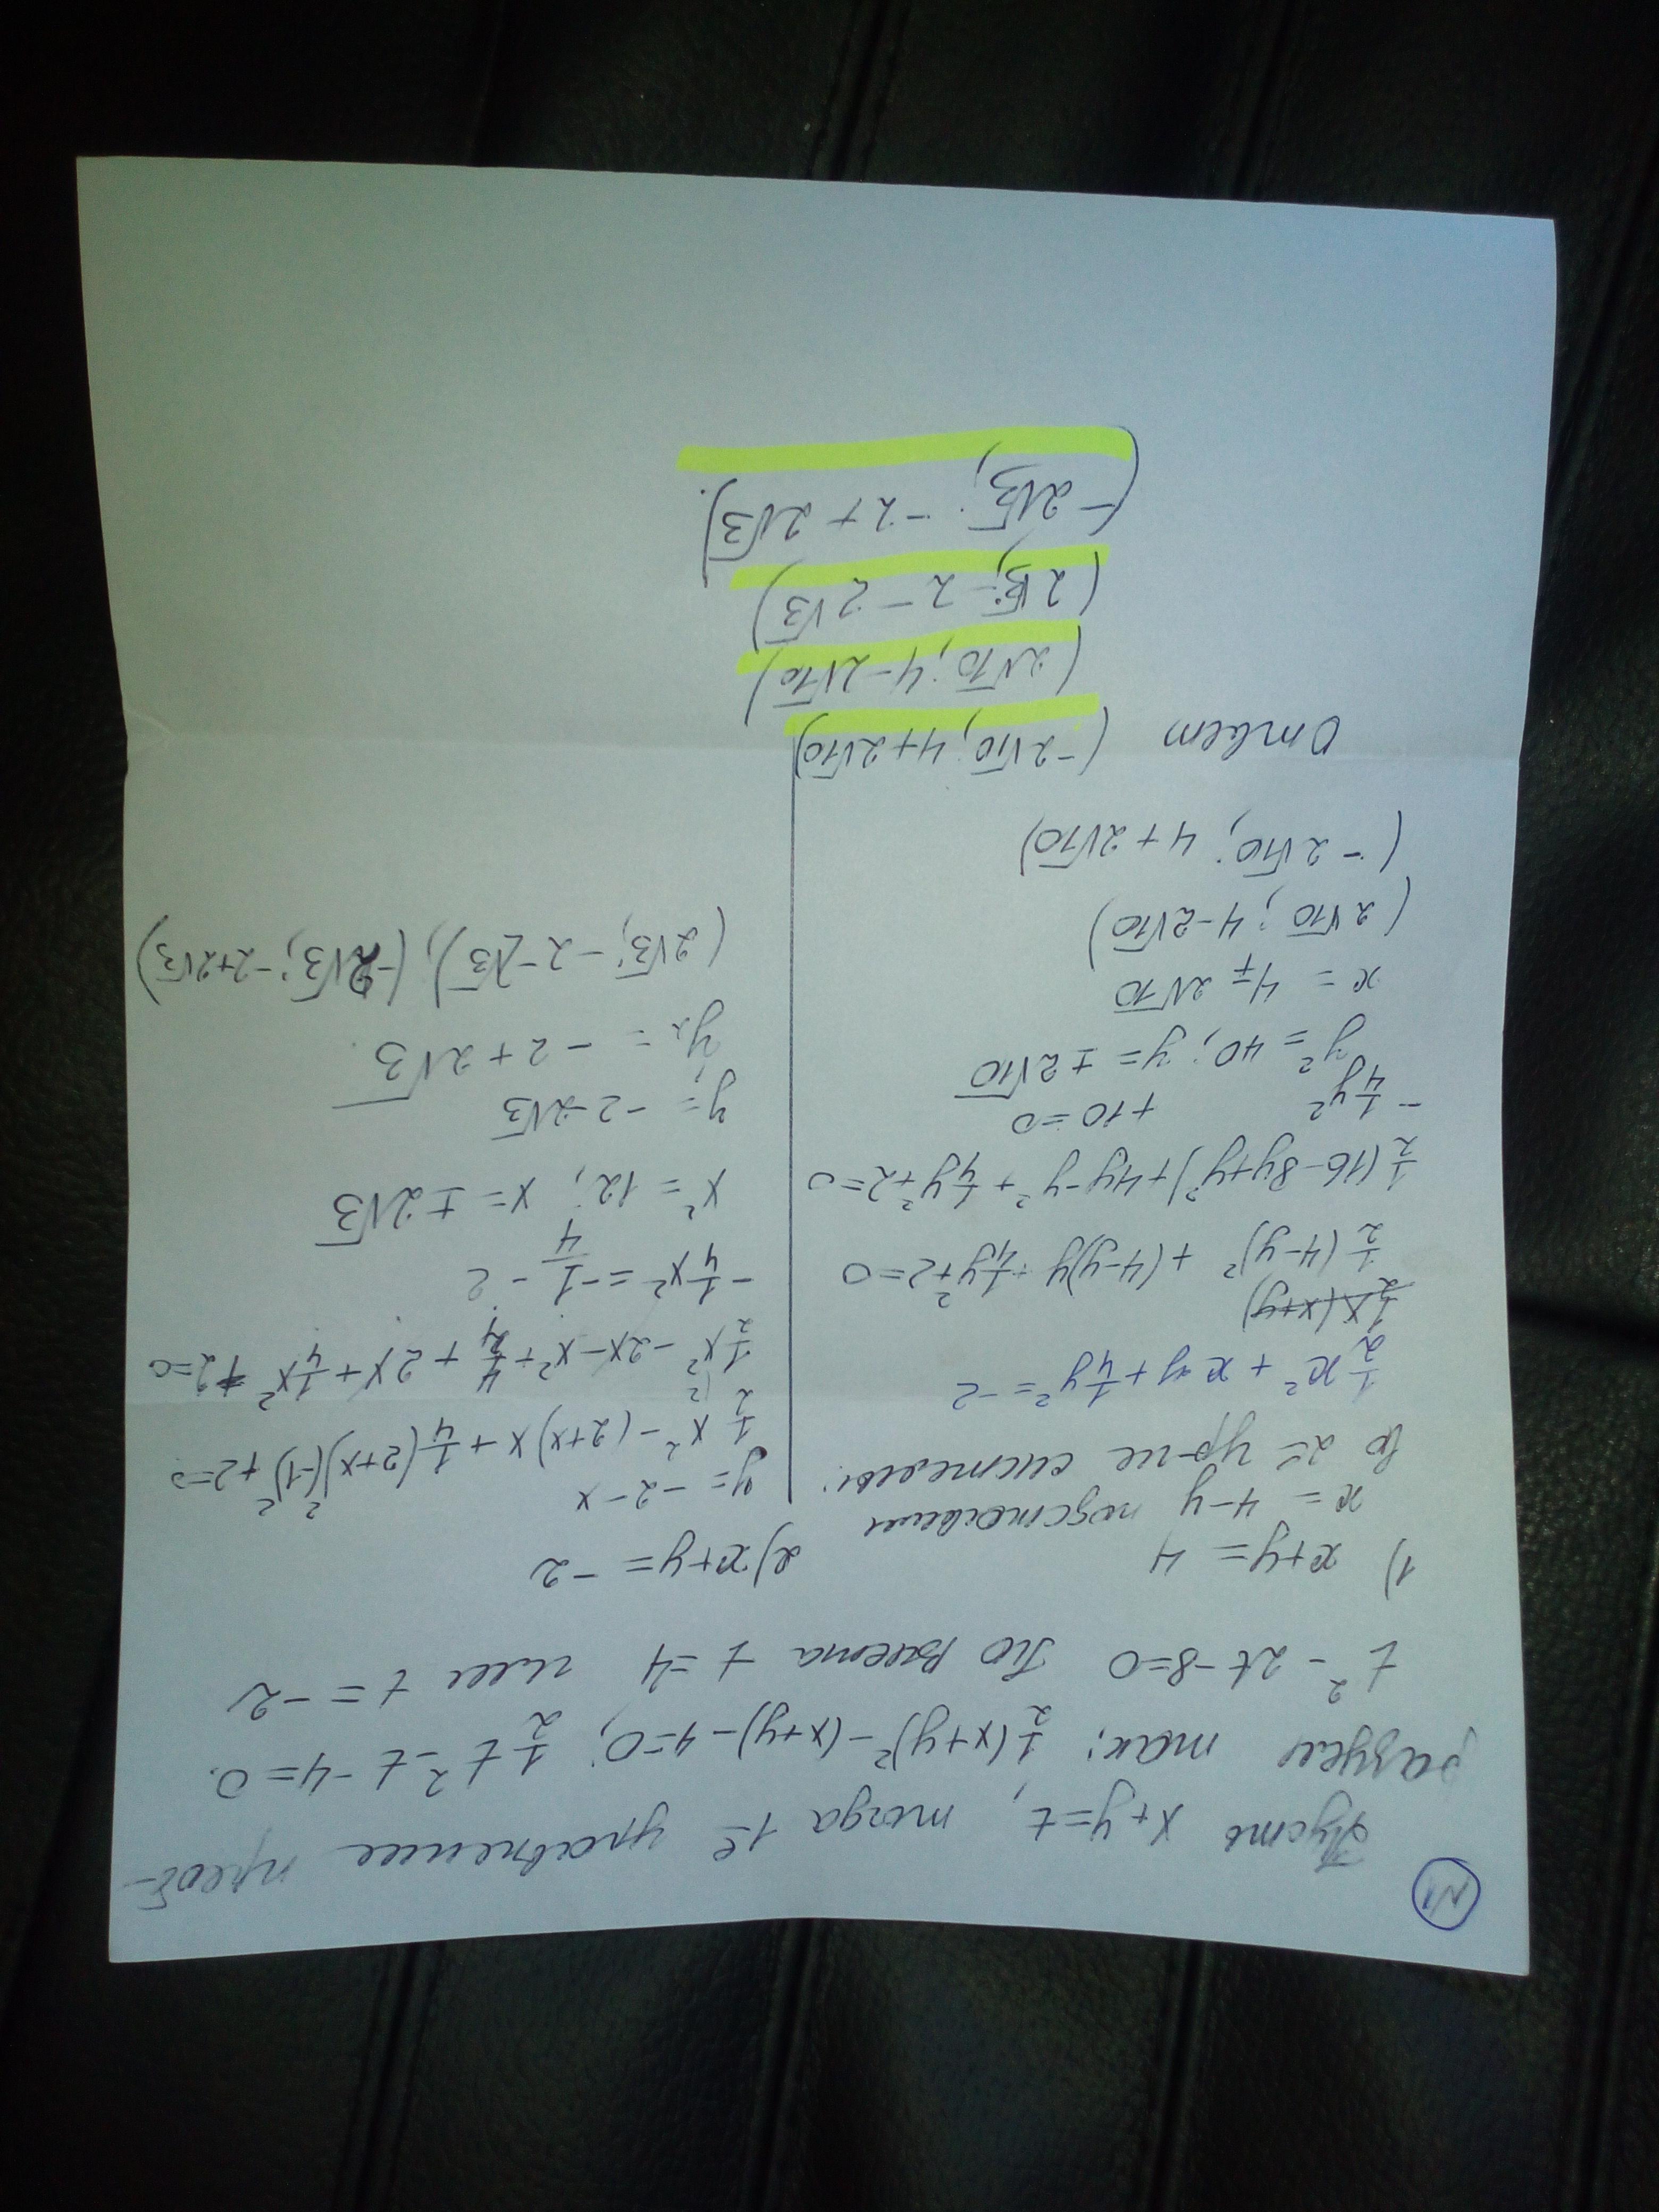 №1
Пусть x+y=t, тогда 1е уравнение преоб-
разуем так: 1/2(x+y)²-(x+y)-4=0; 1/2 t²-t-4=0.
t²-2t-8=0 По Виета t=4 или t=-2
1) x+y=4
x = 4-y подставим
во 2е ур-ие системы:
1/2 x² + xy + 1/4 y² = -2
1/2 x(x+y)
1/2 (4-y)² + (4-y)y + 1/4 y² + 2=0
1/2 (16-8y+y²)+4y-y²+1/4 y²+2=0
-1/4 y² +10=0
y² = 40; y = ±2√10
x = 4∓2√10
(2√10; 4-2√10)
(-2√10; 4+2√10)
2) x+y = -2
y = -2-x
1/2 x² - (2+x)x + 1/4 (2+x)²(-1)² + 2=0
1/2 x² - 2x - x² + 4/4 + 2x + 1/4 x² + 2=0
-1/4 x² = -1 - 2
x² = 12; x = ±2√3
y₁ = -2-2√3
y₂ = -2+2√3.
(2√3; -2-2√3), (-2√3; -2+2√3)
Ответ (-2√10; 4+2√10)
(2√10; 4-2√10)
(2√3; -2-2√3)
(-2√3; -2+2√3).